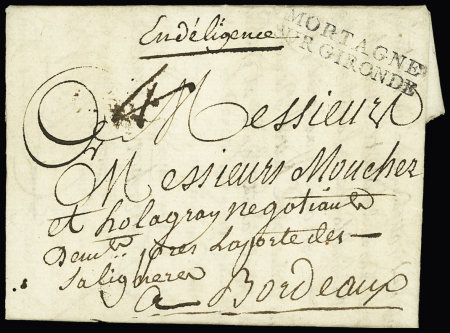 En déligence
MORTAGNE
SUR GIRONDE
4
A Messieurs
Messieurs Mouchez
et holagray negotiants
Demt. pres la porte des
Salignere
a Bordeaux